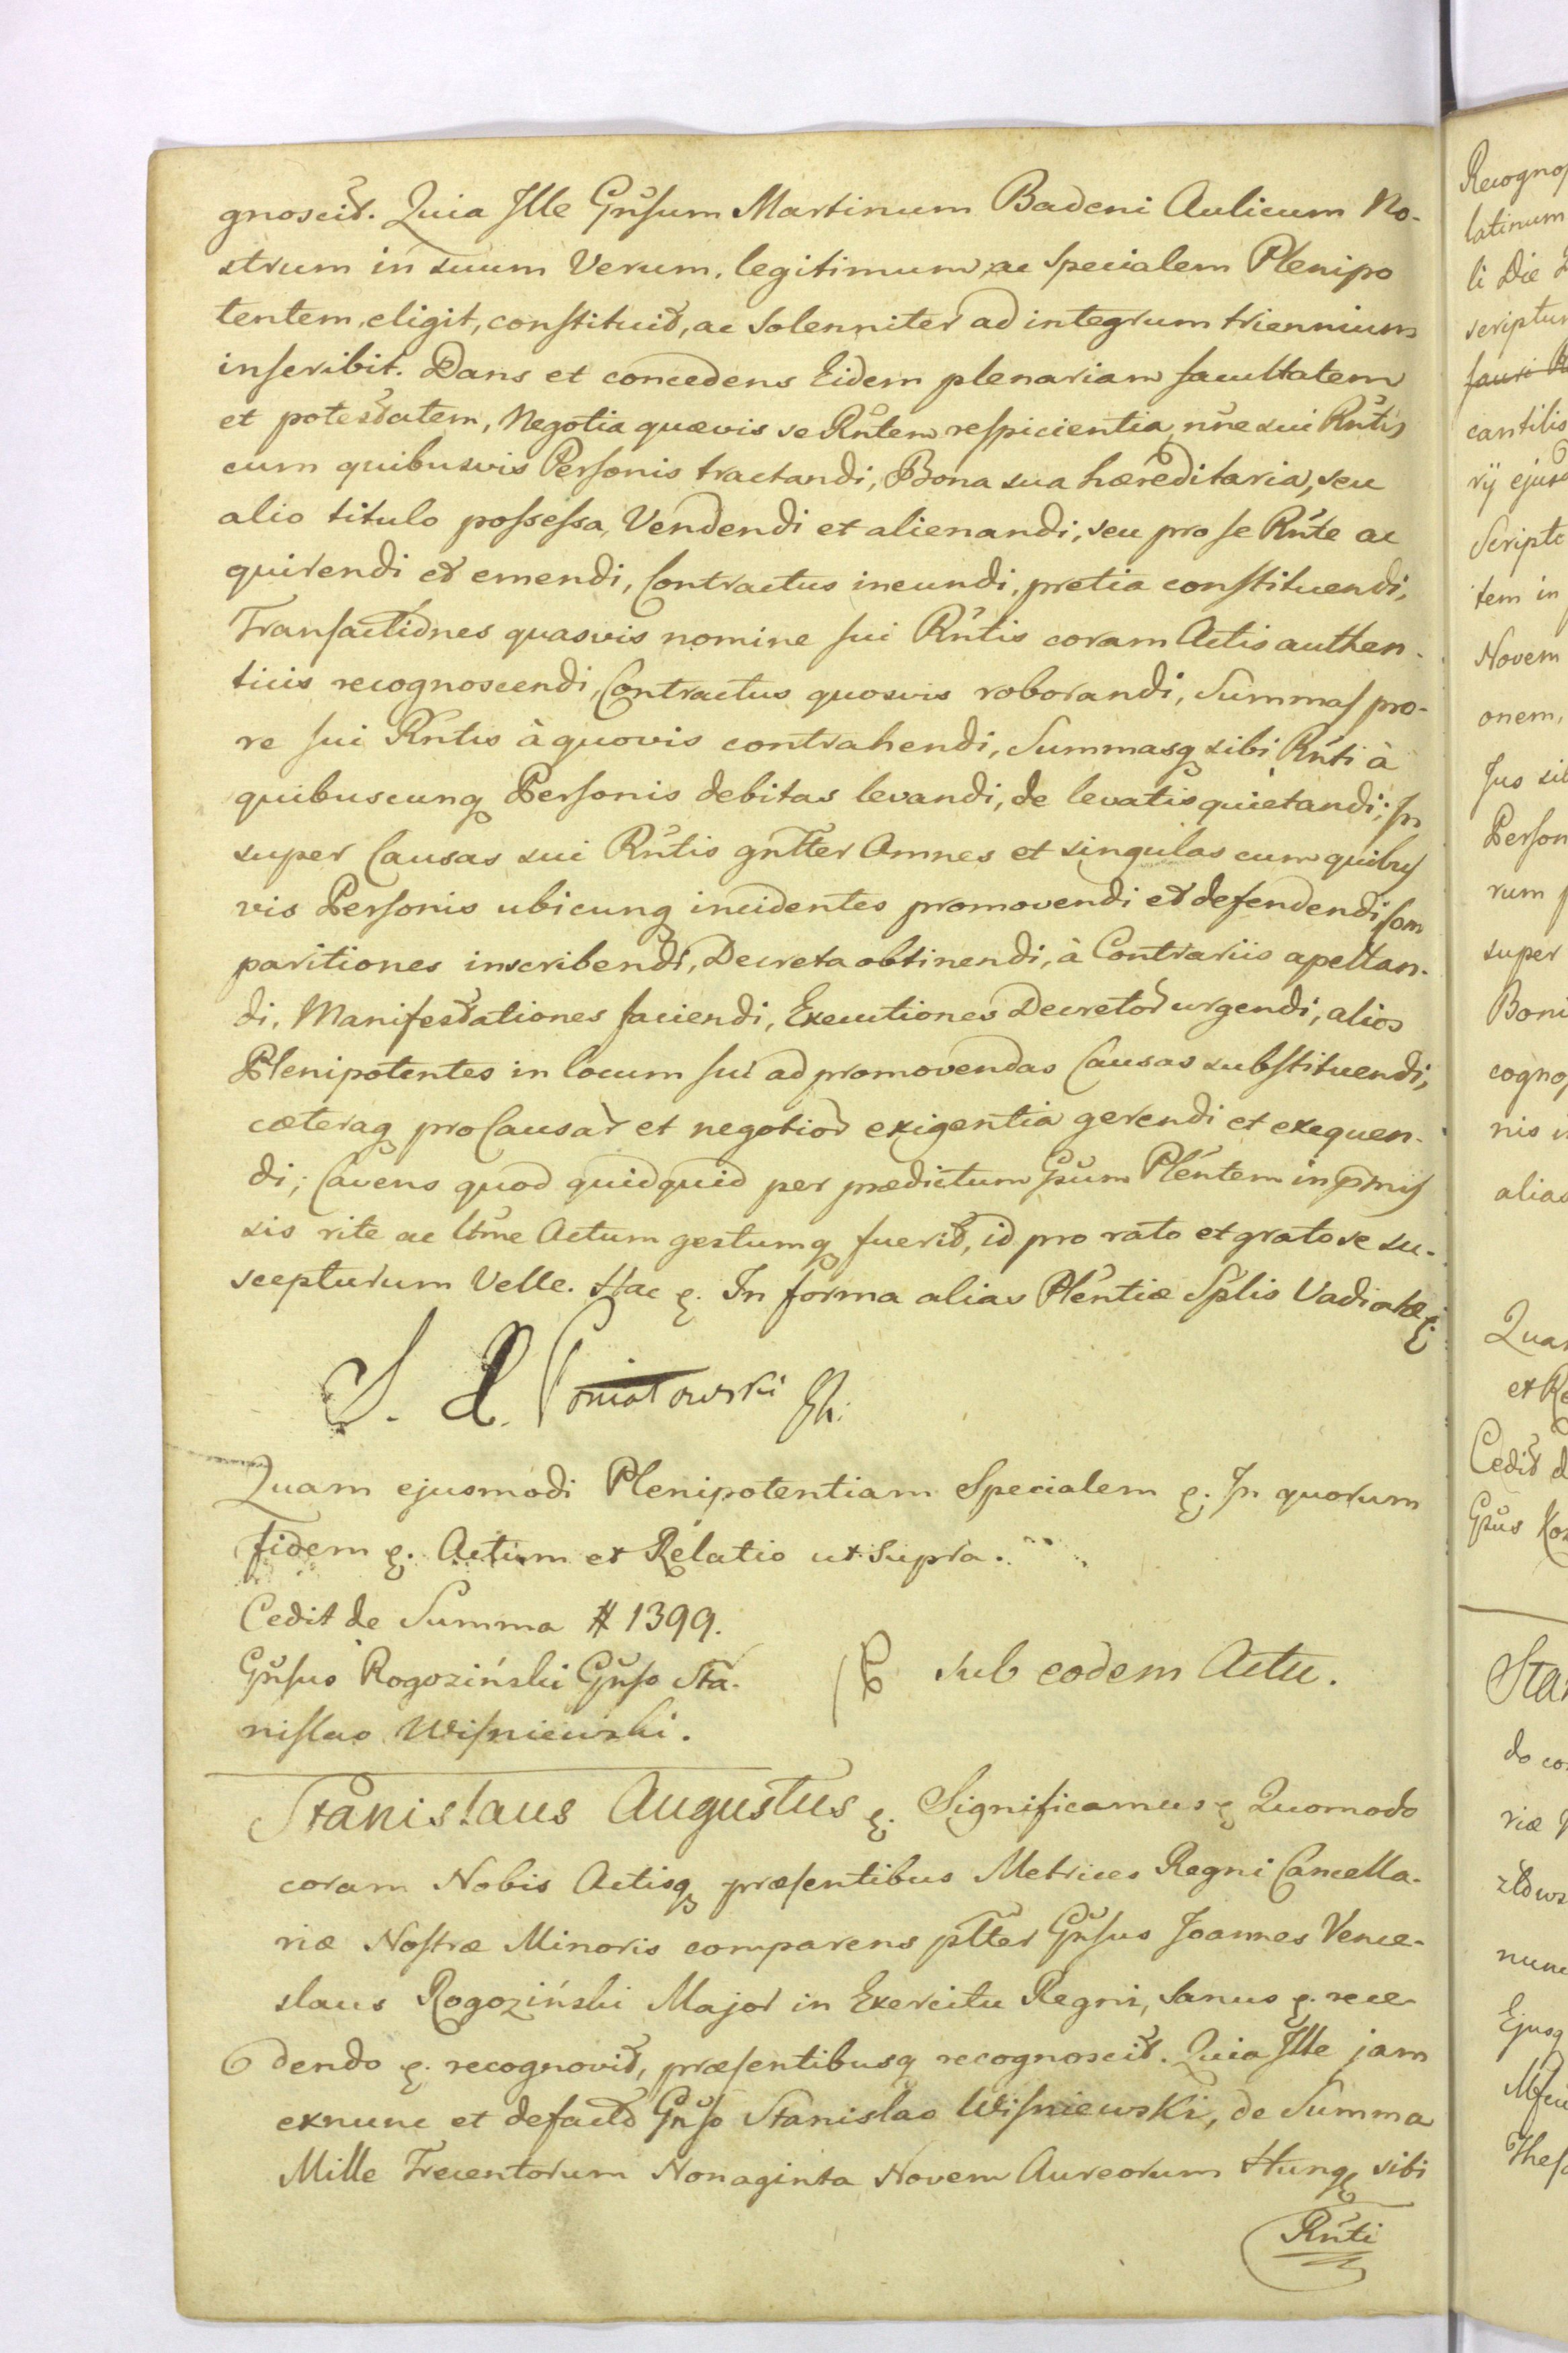 gnoscit. Quia Ille Gñsum Martinum Badeni Aulicum No-
strum in suum Verum, legitimum, ac specialem Plenipo
tentem, eligit, constituit, ac Solenniter ad integrum triennium
inscribit. Dans et concedens Eidem plenariam facultatem
et potestatem, Negotia quævis se Rñtem respicientia, nñe sui Rñtis
cum quibusvis Personis tractandi, Bona sua hæreditaria, seu
alio titulo possessa, Vendendi et alienandi, seu pro se Rñte ac
quirendi et emendi, Contractus ineundi, pretia constituendi,
Transactiones quasvis nomine sui Rñtis coram Actis authen-
ticis recognoscendi, Contractus quosvis roborandi, Summas pro-
re sui Rñtis à quovis contrahendi, Summasq sibi Rñti à
quibuscunq Personis debitas levandi, de levatis quietandi; In
super Causas sui Rñtis gñtter Omnes et singulas cum quibus
vis Personis ubicunq incidentes promovendi et defendendi, Com
paritiones inscribendi, Decreta obtinendi, à Contrariis apellan-
di, Manifestationes faciendi, Executiones Decretor urgendi, alios
Plenipotentes in locum sui ad promovendas Causas substituendi,
cæteraq pro Causar et negotior exigentia gerendi et exequen-
di; Cavens quod quidquid per prædictum Gsum Plentem in præmis
sis rite ac ltme Actum gestumq fuerit, id pro rato et grato se su-
scepturum Velle. Hac &. In forma alias Plentiæ Splis Vadiatæ &.
S. A. Poniatowski
Quam ejusmodi Plenipotentiam Specialem &. In quorum
fidem &. Actum et Relatio ut supra.
Cedit de Summa # 1399.
Gñsus Rogoziński Gñso Sta-
nislao Wisniewski.
sub eodem Actu.
Stanislaus Augustus &. Significamus & Quomodo
coram Nobis Actisq præsentibus Metrices Regni Cancella-
riæ Nostræ Minoris comparens pltter Gñsus Joannes Vence-
slaus Rogoziński Major in Exercitu Regni, Sanus &. rece-
dendo &. recognovit, præsentibusq recognoscit. Quia Ille jam
exnunc et defacto Gñso Stanislao Wisniewski, de Summa
Mille Trecentorum Nonaginta Novem Aureorum Hung sibi
Rñti